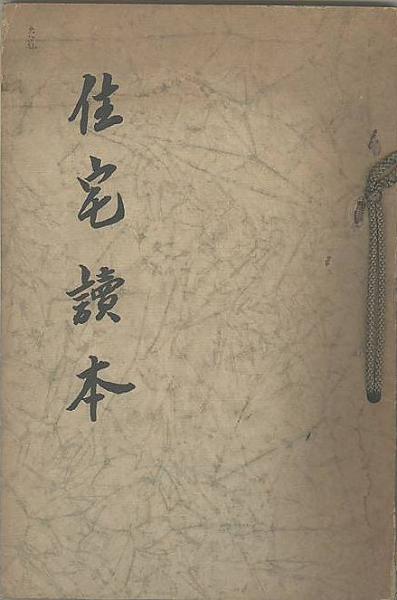 住宅讀本